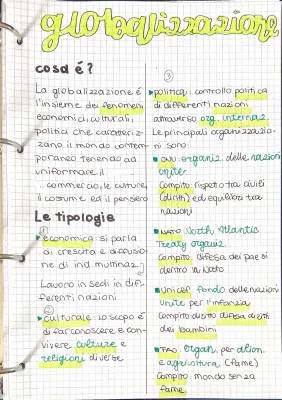 globalizzazione
cosa é?
La globalizzazione é
l'insieme dei fenomeni
economici, culturali,
politici che caratteriz-
zano il mondo contem-
poraneo tenendo ad
uniformare il
commercio, le culture,
il costume ed il pensiero
Le tipologie
①
economica: si parla
di crescita e diffusio-
ne di ind. multinaz.
Lavoro in sedi in dif-
ferenti nazioni
②
culturale: lo scopo é
di far conoscere e con-
vivere culture e
religioni diverse
③
politica: controllo politica
di differenti nazioni
attraverso org. internaz.
Le principali organizzazio-
ni sono:
ONU: organiz. delle nazioni
unite
Compito: rispetto tra civili
(diritti) ed equilibri tra
nazioni
NATO: North Atlantic
Treaty organiz.
Compito: difesa dei paesi
dentro la Nato
Unicef: fondo delle nazioni
unite per l'infanzia
Compito: diritto difesa diritti
dei bambini
FAO: organ. per alim.
e agricoltura (fame)
Compito: mondo senza
fame